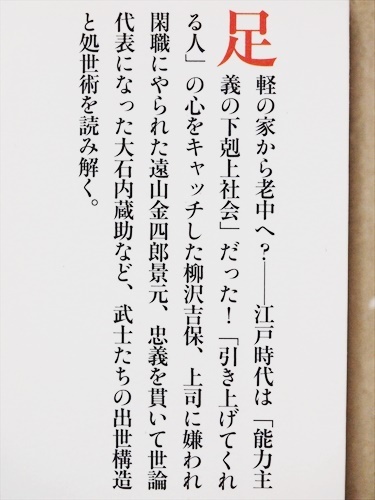 足軽の家から老中へ?――江戸時代は「能力主
義の下剋上社会」だった!「引き上げてくれ
る人」の心をキャッチした柳沢吉保、上司に嫌われ
閑職にやられた遠山金四郎景元、忠義を貫いて世論
代表になった大石内蔵助など、武士たちの出世構造
と処世術を読み解く。